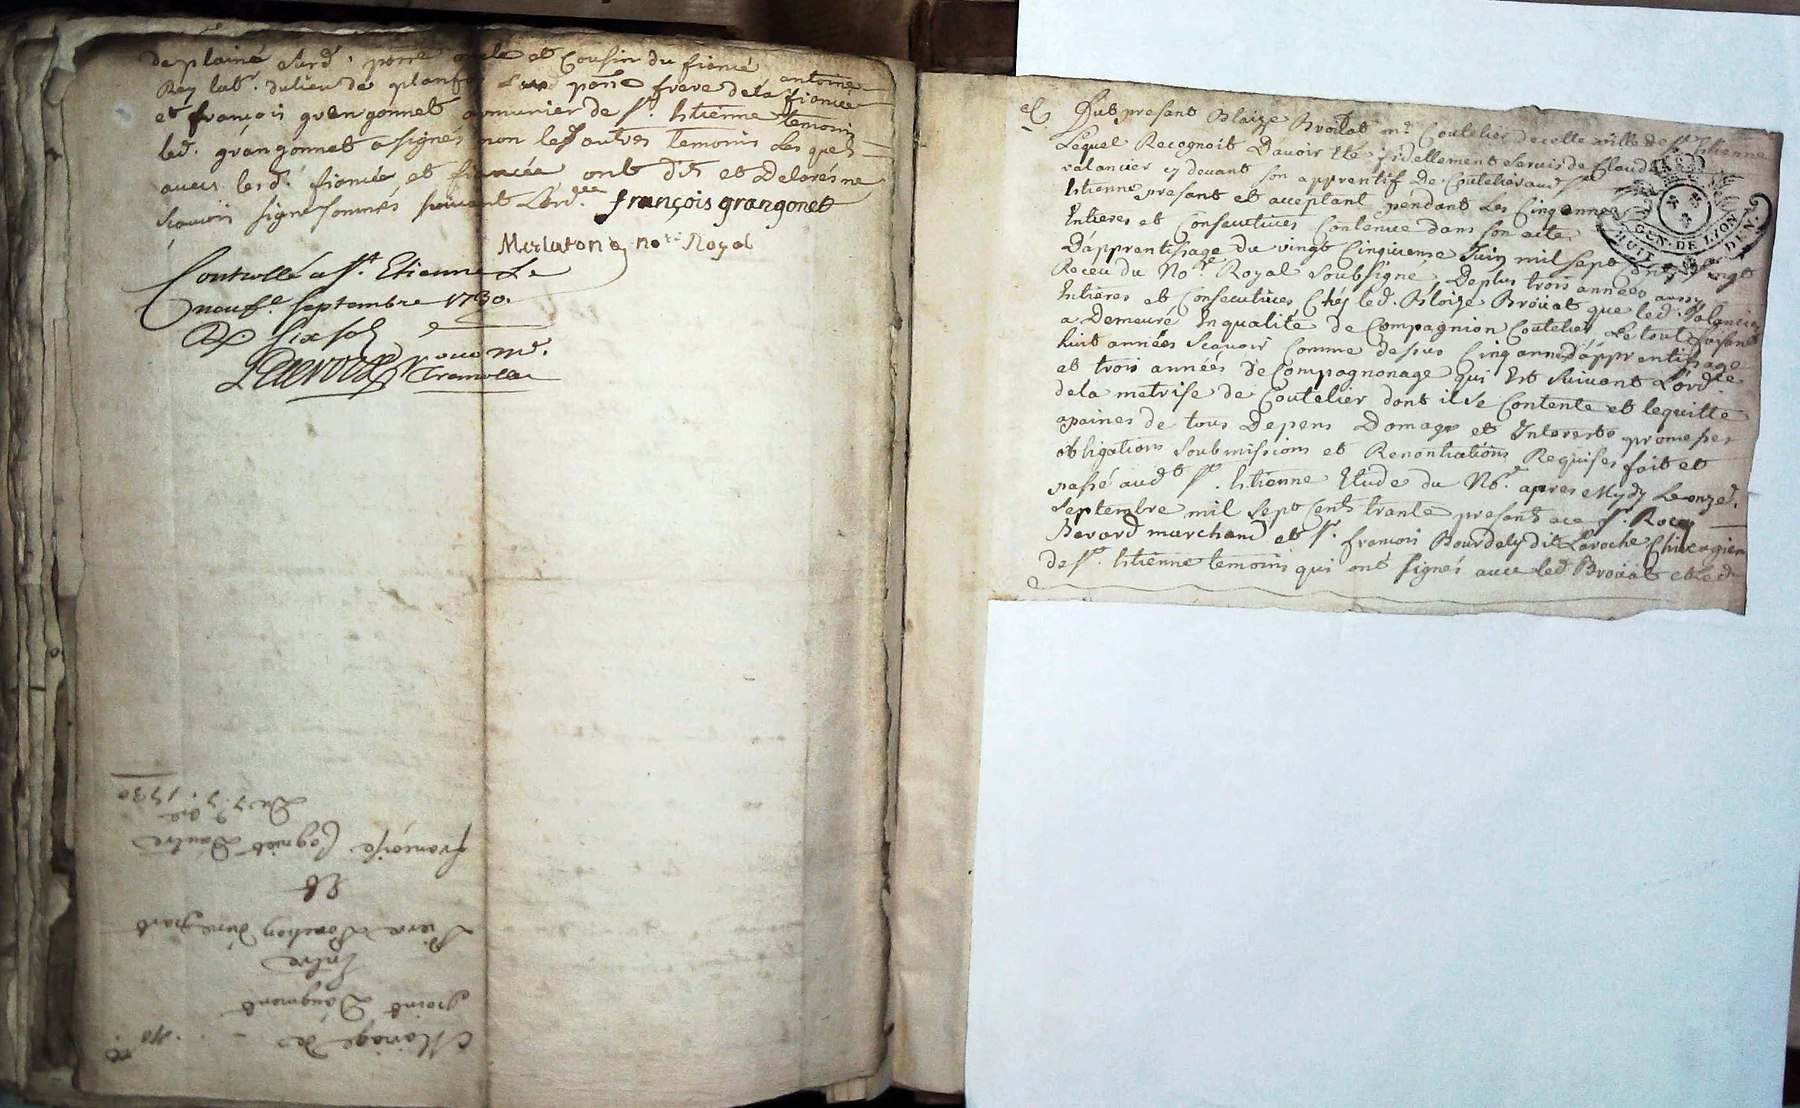 de plaine aud. pnre oncle et Cousin du fiancé
Rey lab. du lieu de planfoy pnre frere de la fiancée antoine
et françois grangonnet armurier de St. Etienne temoin
led. grangonnet a signé non les autres temoins Les quels
avecq lesd. fiancés et fiancée ont dit et declaré ne
scavoir signé sommes suivant L'ord.ce françois grangonet
not Royal
Controllé a St. Etienne Le
neuf.e septembre 1730.
R six sols
Mariage de
point Daugment
Entre
Piere Ponchon d'une part
Et
françoise Cognet D'autre
Du 7. 7bre 1730
Fut presant Blaize Broüat m.e Coutelier de cette ville de St. Etienne
Lequel Recognoit Davoir Eté fidellement servis de Claude
valancier cy devant son apprentif De Coutelier aud. St.
Etienne presant et acceptant pendant Les Cinq années
Entieres et Consecutives Contenue dans son acte
D'apprentissage Du vingt Cinquieme Juin mil sept Cents vingt
Receu du No.re Royal soubsigne, Deplus trois années aussy
Entieres et Consecutives Chéz led. Blaize Broüat que led. Valancier
a Demeuré En qualité de Compagnion Coutelier Le tout faisant
huit années scavoir Comme dessus Cinq années d'apprentissage
et trois années de Compagnonage qui Est suivant L'ord.ce
de la metrise de Coutelier dont il se Contente et le quitte
apaines de tous Depens Domages et Interests promesses
obligations soubmissions et Renontiations Requises fait et
passé aud. St. Etienne Etude du No.re apres Mydy Le onze.e
septembre mil sept Cents trante presants a ce Sr. Roch
Berard marchand et Sr. francois Bourdely dit Laroche Chirurgien
de St. Etienne temoins qui ont signés avec led. Broüat et led.
GEN. DE LYON